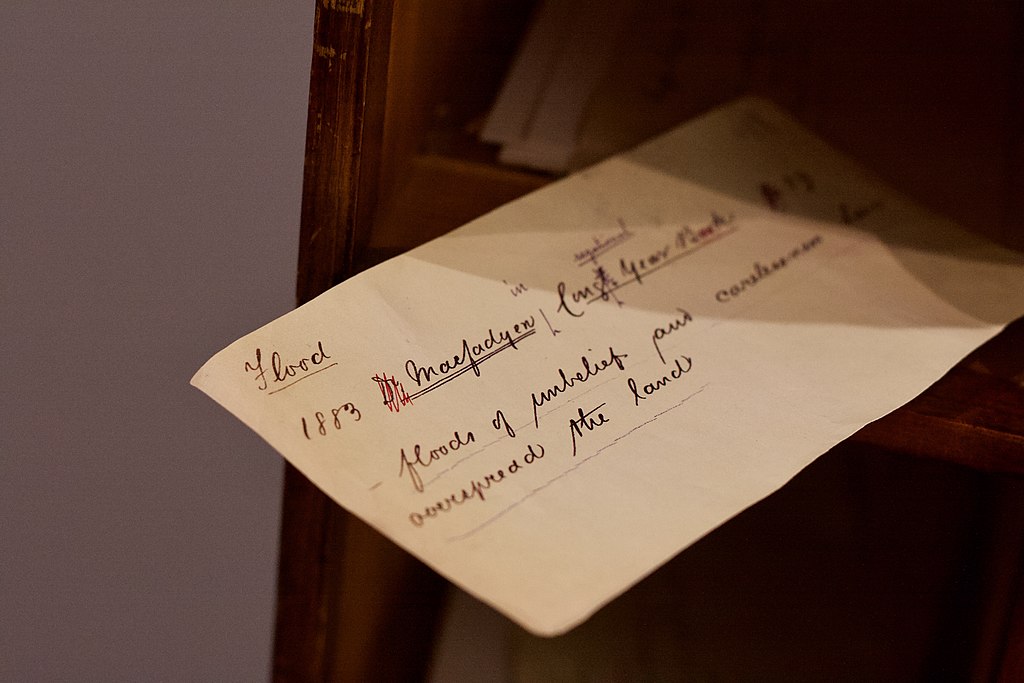 Flood
1883 Macfadyen in Congl Year Book
floods of unbelief and carelessness
overspread the land